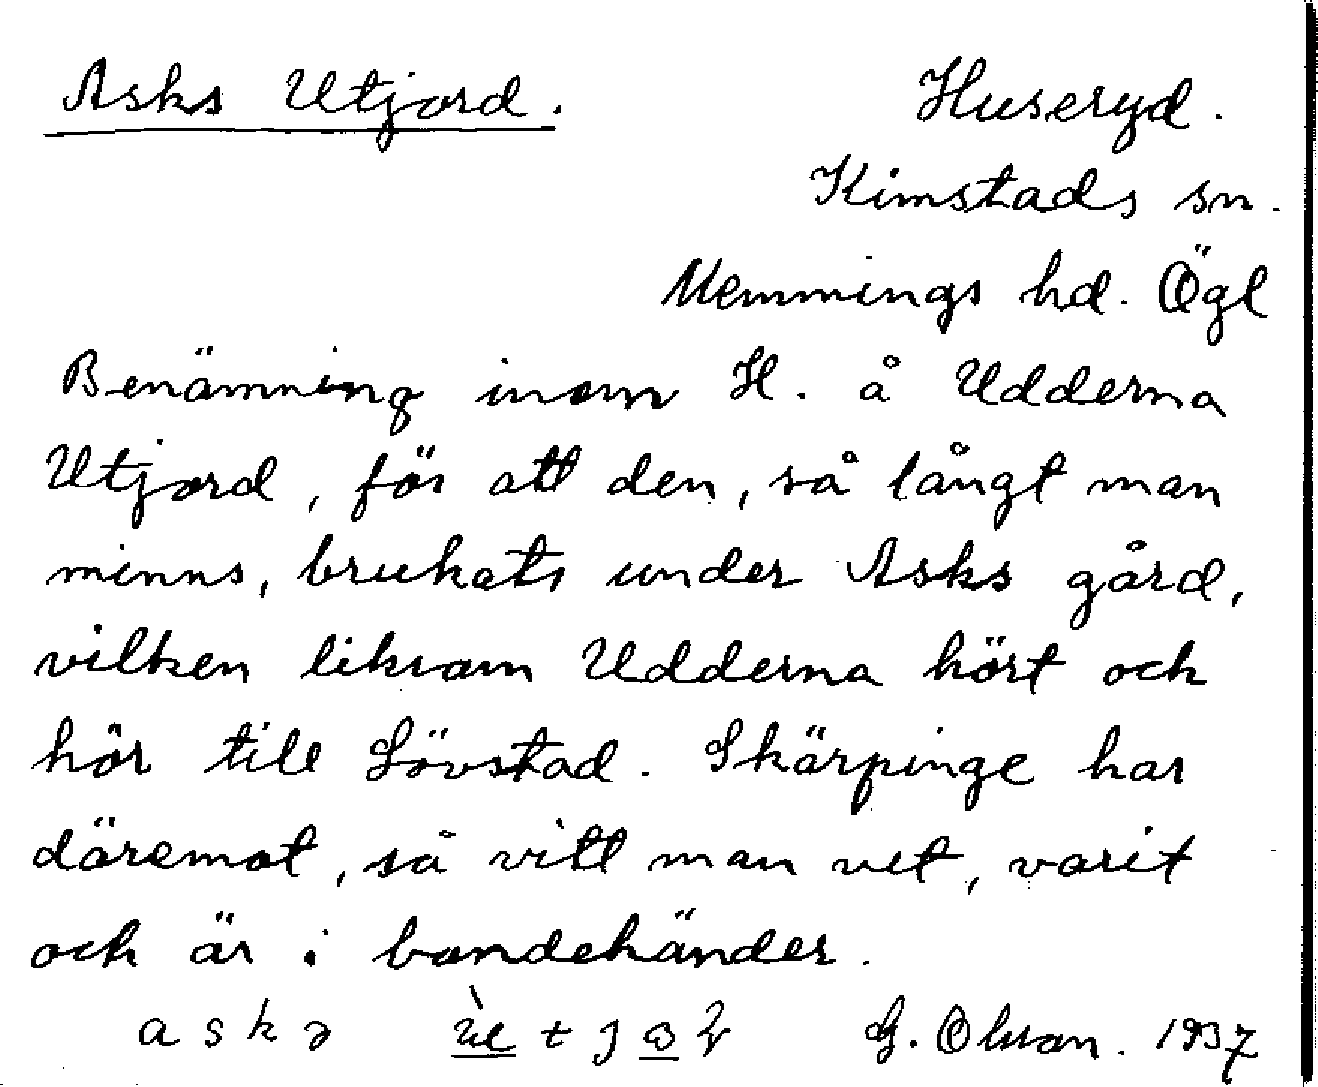 Asks Utjord. Huseryd.
Kimstads sn.
Memmings hd. Ögl
Benämning inom H. å Udderna
Utjord, för att den, så långt man
minns, brukats under Asks gård,
vilken liksom Udderna hört och
hör till Lövstad. Skärpinge har
däremot, så vitt man vet, varit
och är i bondehänder.
G. Olsson. 1937